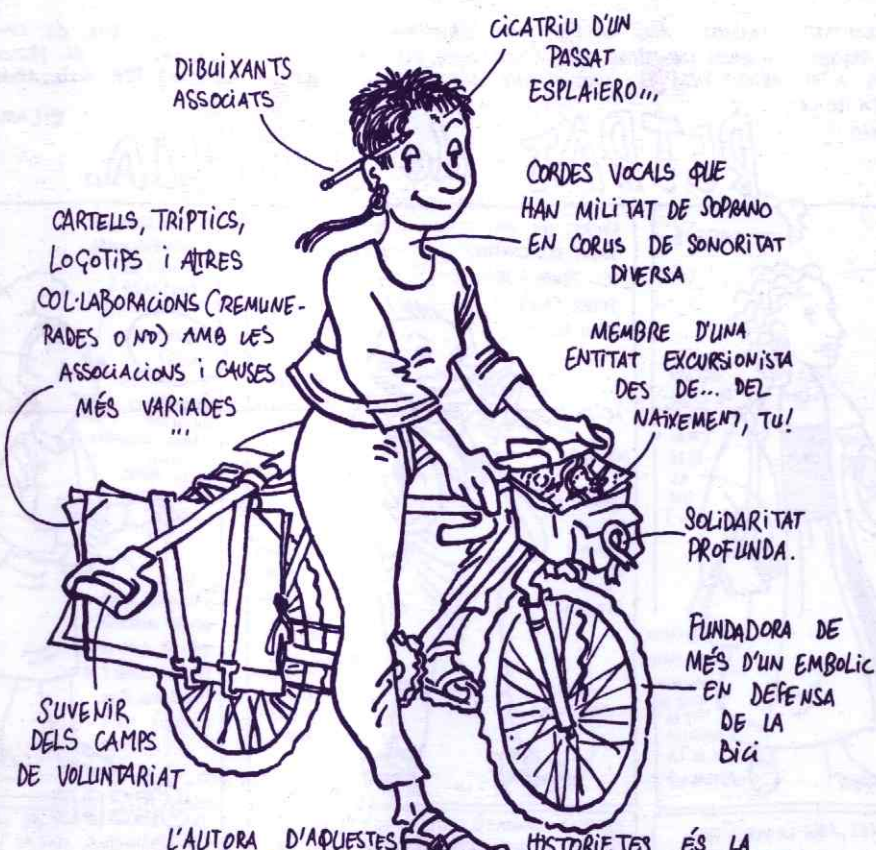 CICATRIU D'UN
PASSAT
ESPLAIERO...
DIBUIXANTS
ASSOCIATS
CORDES VOCALS QUE
HAN MILITAT DE SOPRANO
EN CORUS DE SONORITAT
DIVERSA
CARTELLS, TRÍPTICS,
LOGOTIPS I ALTRES
COL·LABORACIONS (REMUNE-
RADES O NO) AMB LES
ASSOCIACIONS I CAUSES
MÉS VARIADES
...
MEMBRE D'UNA
ENTITAT EXCURSIONISTA
DES DE... DEL
NAIXEMENT, TU!
SOLIDARITAT
PROFUNDA.
FUNDADORA DE
MÉS D'UN EMBOLIC
EN DEFENSA
DE LA
BICI
SUVENIR
DELS CAMPS
DE VOLUNTARIAT
L'AUTORA D'AQUESTES HISTORIETES ÉS LA